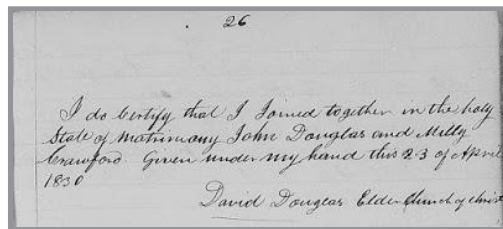 26
I do Certify that I Joined together in the holy
State of matrimony John Douglas and Milly
Crawford Given under my hand this 23 of April
1830
David Douglas Elder Church of Christ